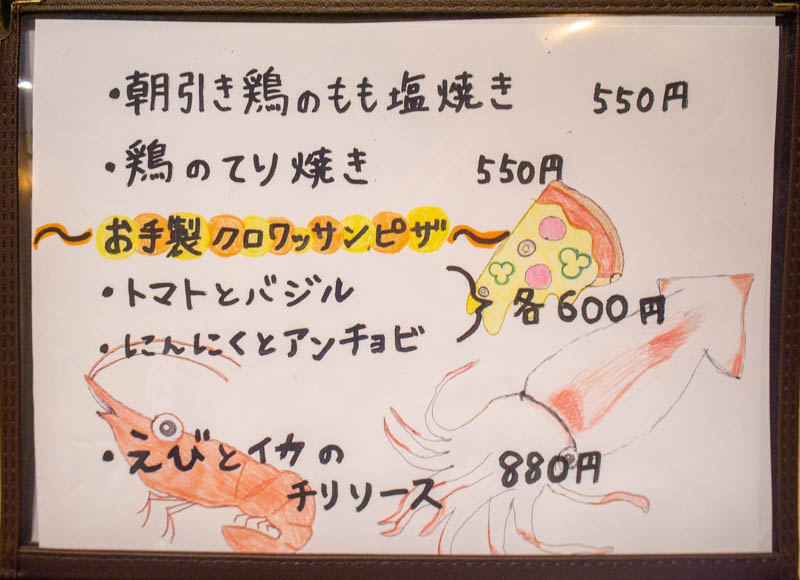 ・朝引き鶏のもも塩焼き 550円
・鶏のてり焼き 550円
〜お手製クロワッサンピザ〜
・トマトとバジル
各600円
・にんにくとアンチョビ
・えびとイカの
チリソース 880円